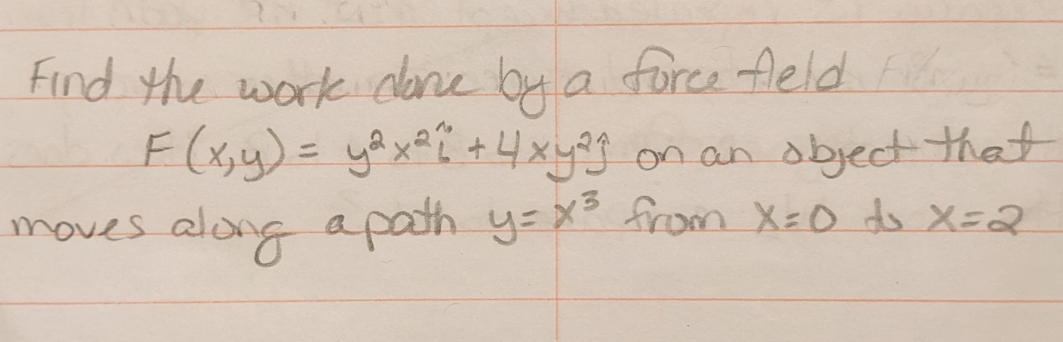 Find the work done by a force field
F(x,y) = y²x²î + 4xy²ĵ on an object that
moves along a path y = x³ from x=0 to x=2